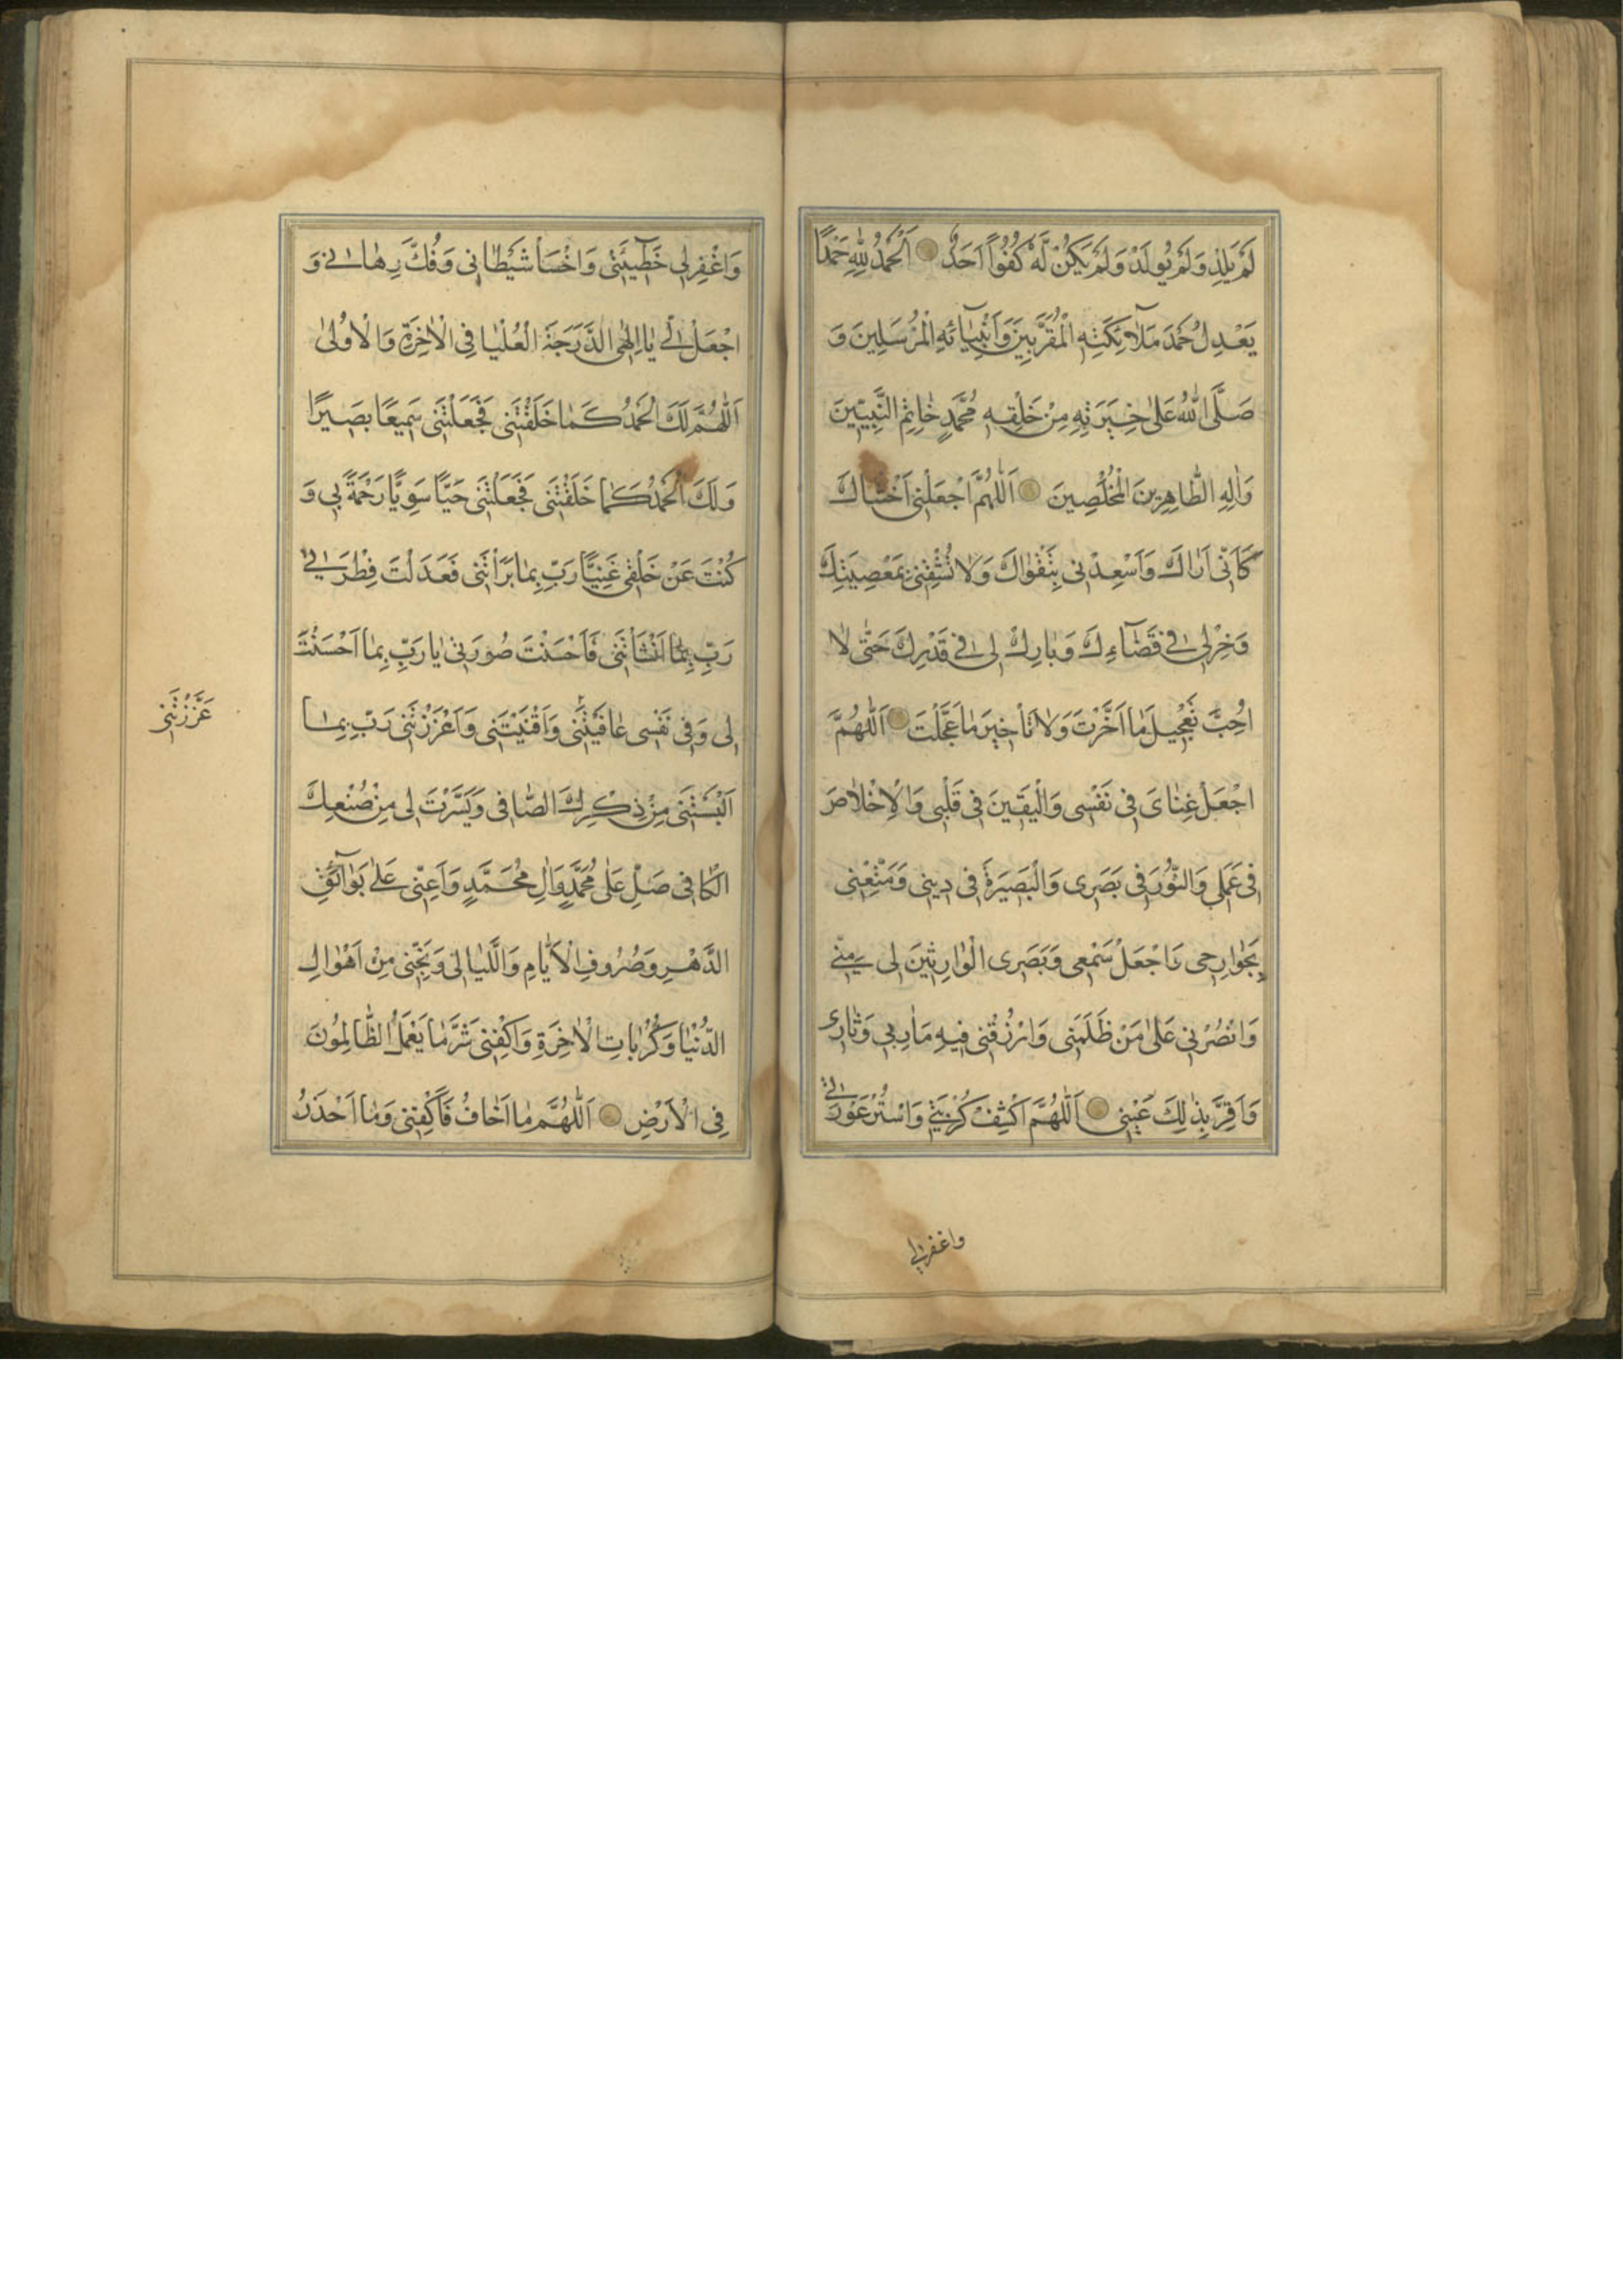 لَمْ يَلِدْ وَلَمْ يُولَدْ وَلَمْ يَكُنْ لَهُ كُفُوًا اَحَدٌ اَلْحَمْدُ لِلّٰهِ حَمْدًا
يَعْدِلُ حَمْدَ مَلَآئِكَتِهِ الْمُقَرَّبِينَ وَاَنْبِيَآئِهِ الْمُرْسَلِينَ وَ
صَلَّى اللّٰهُ عَلٰى خِيَرَتِهِ مِنْ خَلْقِهِ مُحَمَّدٍ خٰاتِمِ النَّبِيّينَ
وَاٰلِهِ الطّٰاهِرِينَ الْمُخْلَصِينَ اَللّٰهُمَّ اجْعَلْنِى اَخْشٰاكَ
كَاَنّى اَرٰاكَ وَاَسْعِدْنِى بِتَقْوٰاكَ وَلٰا تُشْقِنِى بِمَعْصِيَتِكَ
وَخِرْلِى فِى قَضٰآءِكَ وَبٰارِكْ لِى فِى قَدَرِكَ حَتّٰى لٰا
اُحِبَّ تَعْجِيلَ مٰا اَخَّرْتَ وَلٰا تَأْخِيرَ مٰا عَجَّلْتَ اَللّٰهُمَّ
اجْعَلْ غِنٰاىَ فِى نَفْسِى وَالْيَقِينَ فِى قَلْبِى وَالْاِخْلٰاصَ
فِى عَمَلِى وَالنُّورَ فِى بَصَرِى وَالْبَصِيرَةَ فِى دِينِى وَمَتِّعْنِى
بِجَوٰارِحِى وَاجْعَلْ سَمْعِى وَبَصَرِى الْوٰارِثَيْنَ لِى مِنّى
وَانْصُرْنِى عَلٰى مَنْ ظَلَمَنِى وَارْزُقْنِى فِيهِ مَاٰرِبِى وَثٰارِى
وَاَقِرَّ بِذٰلِكَ عَيْنِى اَللّٰهُمَّ اكْشِفْ كُرْبَتِى وَاسْتُرْ عَوْرَتِى
واغفرلى
وَاغْفِرْلِى خَطِيٓئَتِى وَاخْسَأْ شَيْطٰانِى وَفُكَّ رِهٰانِى وَ
اجْعَلْ لِى يٰا اِلٰهِى الدَّرَجَةَ الْعُلْيٰا فِى الْاٰخِرَةِ وَالْاُولٰى
اَللّٰهُمَّ لَكَ الْحَمْدُ كَمٰا خَلَقْتَنِى فَجَعَلْتَنِى سَمِيعًا بَصِيرًا
وَلَكَ الْحَمْدُ كَمٰا خَلَقْتَنِى فَجَعَلْتَنِى حَيًّا سَوِيًّا رَحْمَةً بِى وَ
كُنْتَ عَنْ خَلْقِى غَنِيًّا رَبِّ بِمٰا بَرَأْتَنِى فَعَدَلْتَ فِطْرَتِى
رَبِّ بِمٰا اَنْشَأْتَنِى فَاَحْسَنْتَ صُورَتِى يٰا رَبِّ بِمٰا اَحْسَنْتَ
لِى وَفِى نَفْسِى عٰافَيْتَنِى وَاَقْنَيْتَنِى وَاَعْزَزْتَنِى رَبِّ بِمٰا
عَزَّزْتَنِى
اَلْبَسْتَنِى مِنْ ذِكْرِكَ الصّٰافِى وَيَسَّرْتَ لِى مِنْ صُنْعِكَ
الْكٰافِى صَلِّ عَلٰى مُحَمَّدٍ وَاٰلِ مُحَمَّدٍ وَاَعِنّى عَلٰى بَوٰآئِقِ
الدَّهْرِ وَصُرُوفِ الْاَيّٰامِ وَاللَّيٰالِى وَنَجِّنِى مِنْ اَهْوٰالِ
الدُّنْيٰا وَكُرُبٰاتِ الْاٰخِرَةِ وَاكْفِنِى شَرَّ مٰا يَعْمَلُ الظّٰالِمُونَ
فِى الْاَرْضِ اَللّٰهُمَّ مٰا اَخٰافُ فَاكْفِنِى وَمٰا اَحْذَرُ